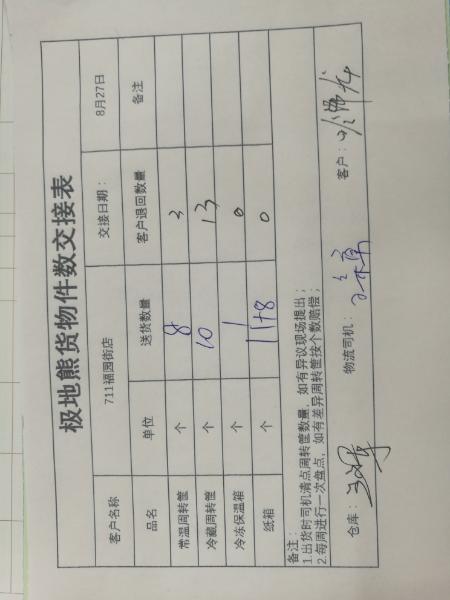 极地熊货物件数交接表
客户名称 711福园街店 交接日期： 8月27日
品名 单位 送货数量 客户退回数量 备注
常温周转筐 个 8 3
冷藏周转筐 个 10 13
冷冻保温箱 个 1 0
纸箱 个 11+8 0
备注：
1.出货时司机清点周转筐数量，如有异议现场提出；
2.每周进行一次盘点，如有差异周转筐按个数赔偿；
仓库： 物流司机： 客户：